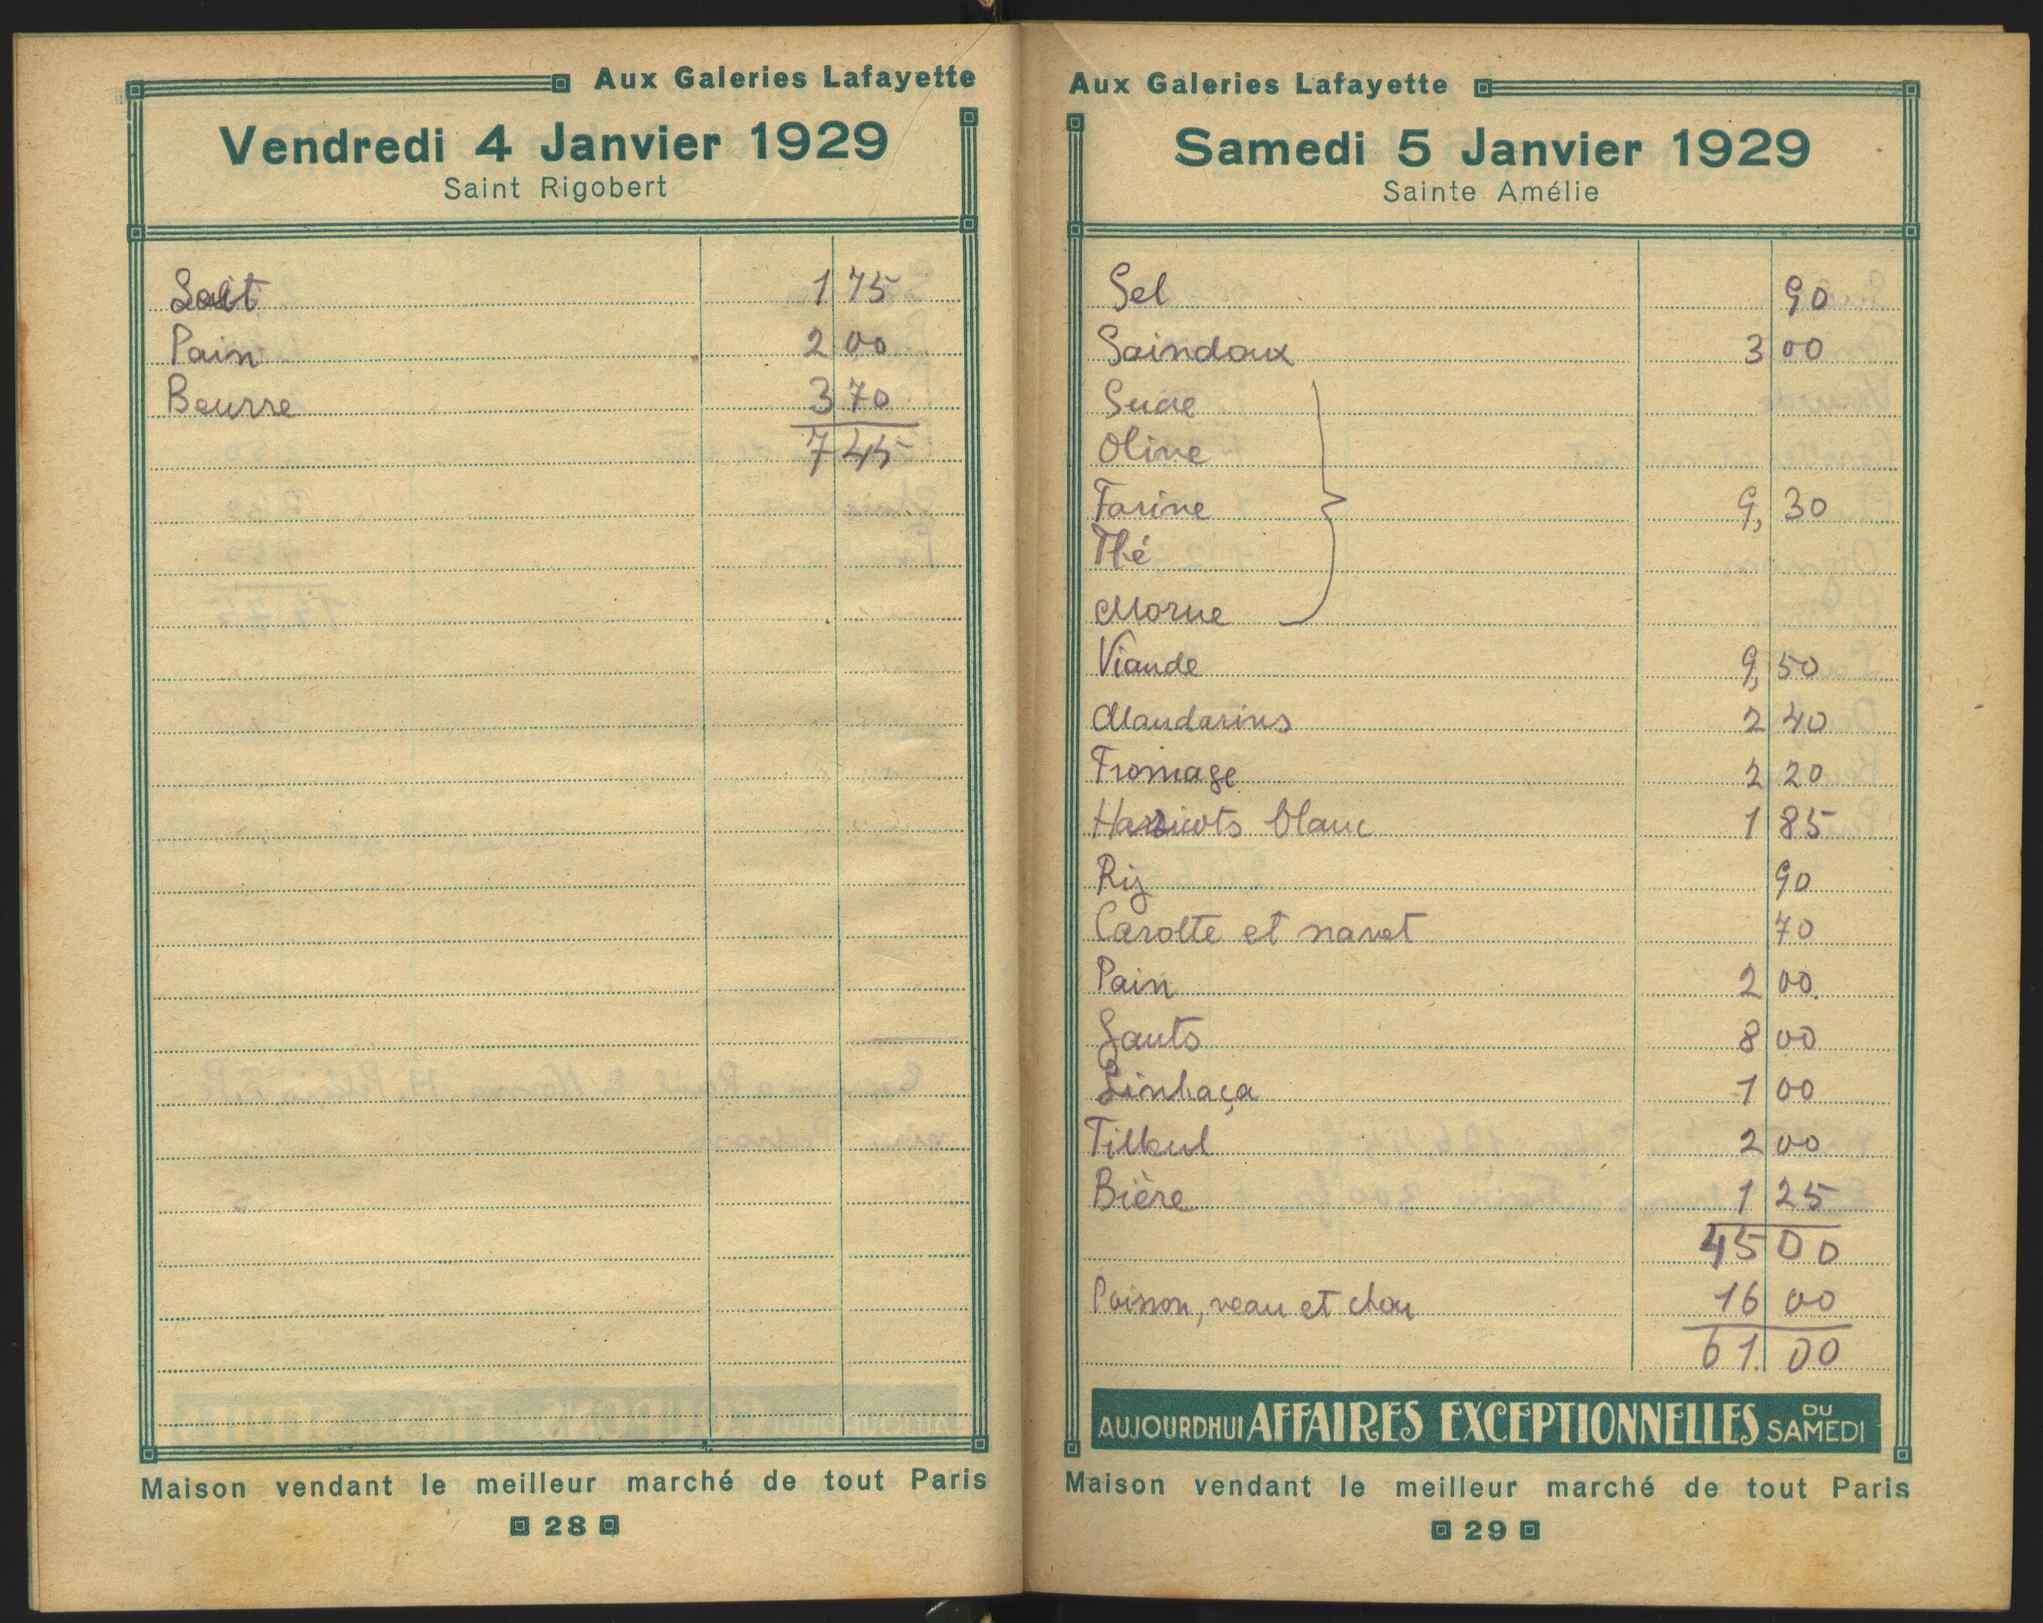 Aux Galeries Lafayette
Vendredi 4 Janvier 1929
Saint Rigobert
Lait 1 75
Pain 2 00
Beurre 3 70
7 45
Maison vendant le meilleur marché de tout Paris
28
Aux Galeries Lafayette
Samedi 5 Janvier 1929
Sainte Amélie
Sel 90
Saindoux 3 00
Sucre
Olive
Farine 9, 30
Thé
Morue
Viande 9, 50
Mandarins 2 40
Fromage 2 20
Harricots blanc 1 85
Riz 90
Carotte et navet 70
Pain 2 00
Gants 8 00
Linhaça 1 00
Tilleul 2 00
Bière 1 25
45 00
Poisson, veau et chou 16 00
61. 00
AUJOURDHUI AFFAIRES EXCEPTIONNELLES DU SAMEDI
Maison vendant le meilleur marché de tout Paris
29